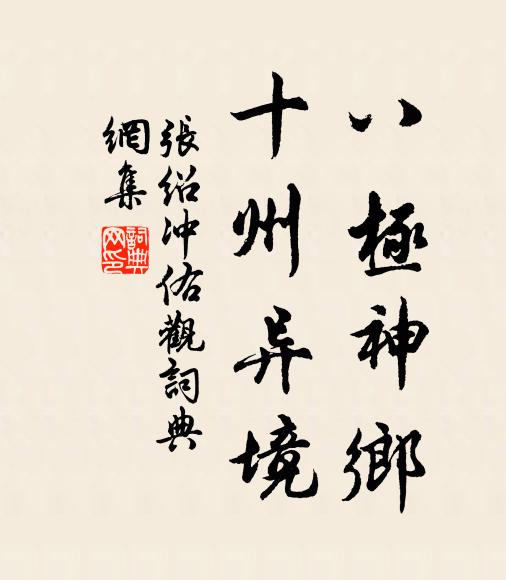 八極神鄉
十州异境
張紹冲佑觀詞典
網集
詞典網印